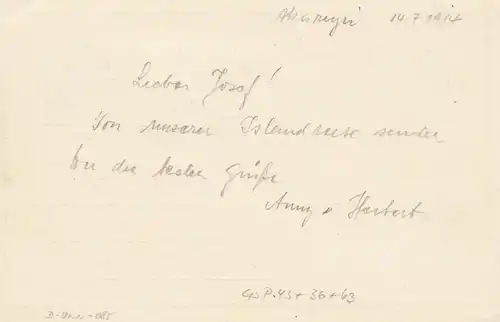 Akureyri 14.7.1914
Lieber Josef!
Von unserer Islandreise senden
wir die besten Grüße
Anny u Herbert
GP:45+36+63